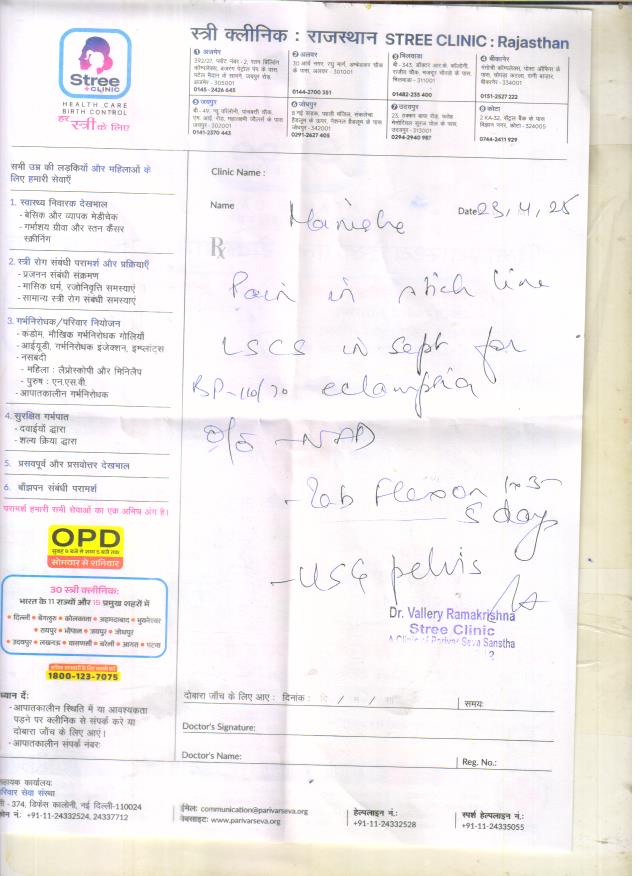 स्त्री क्लीनिक : राजस्थान STREE CLINIC : Rajasthan
Stree
CLINIC
HEALTH CARE
BIRTH CONTROL
हर
स्त्री के लिए
1 अजमेर
392/27, प्लॉट नंबर - 2,
अजमेर - 305001
0145 - 2426 645
2 अलवर
30 आर्य नगर,
अलवर - 301001
0144-2700 351
3 भिलवाड़ा
भिलवाड़ा - 311001
01482-235 400
4 बीकानेर
बीकानेर - 334001
0151-2527 222
5 जयपुर
जयपुर - 302001
0141-2370 443
6 जोधपुर
जोधपुर - 342001
0291-2627 405
7 उदयपुर
उदयपुर - 313001
0294-2940 987
8 कोटा
2 KA-32, सेंट्रल बैंक के पास
विज्ञान नगर, कोटा - 324005
0744-2411 929
सभी उम्र की लड़कियों और महिलाओं के
लिए हमारी सेवाएँ
1. स्वास्थ्य निवारक देखभाल
- बेसिक और व्यापक मेडीचेक
- गर्भाशय ग्रीवा और स्तन कैंसर
स्क्रीनिंग
2. स्त्री रोग संबंधी परामर्श और प्रक्रियाएँ
- प्रजनन संबंधी संक्रमण
- मासिक धर्म, रजोनिवृत्ति समस्याएं
- सामान्य स्त्री रोग संबंधी समस्याएं
3. गर्भनिरोधक/परिवार नियोजन
- कंडोम, मौखिक गर्भनिरोधक गोलियाँ
- आईयूडी, गर्भनिरोधक इंजेक्शन, इम्प्लांट्स
- नसबंदी
- महिला : लैप्रोस्कोपी और मिनिलैप
- पुरुष : एन.एस.वी.
- आपातकालीन गर्भनिरोधक
4. सुरक्षित गर्भपात
- दवाईयों द्वारा
- शल्य क्रिया द्वारा
5. प्रसवपूर्व और प्रसवोत्तर देखभाल
6. बाँझपन संबंधी परामर्श
परामर्श हमारी सभी सेवाओं का एक अभिन्न अंग है।
OPD
सुबह 9 बजे से शाम 5 बजे तक
सोमवार से शनिवार
30 स्त्री क्लीनिक:
भारत के 11 राज्यों और 15 प्रमुख शहरों में
• दिल्ली • बेंगलुरु • कोलकाता • अहमदाबाद • भुवनेश्वर
• रायपुर • भोपाल • जयपुर • जोधपुर
• उदयपुर • लखनऊ • वाराणसी • बरेली • आगरा • पटना
1800-123-7075
ध्यान दें:
- आपातकालीन स्थिति में या आवश्यकता
पड़ने पर क्लीनिक से संपर्क करे या
दोबारा जाँच के लिए आएं।
- आपातकालीन संपर्क नंबर:
Clinic Name :
Name Manisha Date 23/4/25
Rx
Pain in stich line
LSCS in sept for
BP-110/70 eclampsia
O/E - NAD
- Tab Flexon 1x3-
5 days
- USG pelvis
Dr. Vallery Ramakrishna
Stree Clinic
A Clinic of Parivar Seva Sanstha
दोबारा जाँच के लिए आए : दिनांक : समय:
Doctor's Signature:
Doctor's Name: Reg. No.:
सहायक कार्यालय:
परिवार सेवा संस्था
सी - 374, डिफेंस कालोनी, नई दिल्ली-110024
फोन नं.: +91-11-24332524, 24337712
ईमेल: communication@parivarseva.org
वेबसाइट: www.parivarseva.org
हेल्पलाइन नं.:
+91-11-24332528
स्पर्श हेल्पलाइन नं.:
+91-11-24335055